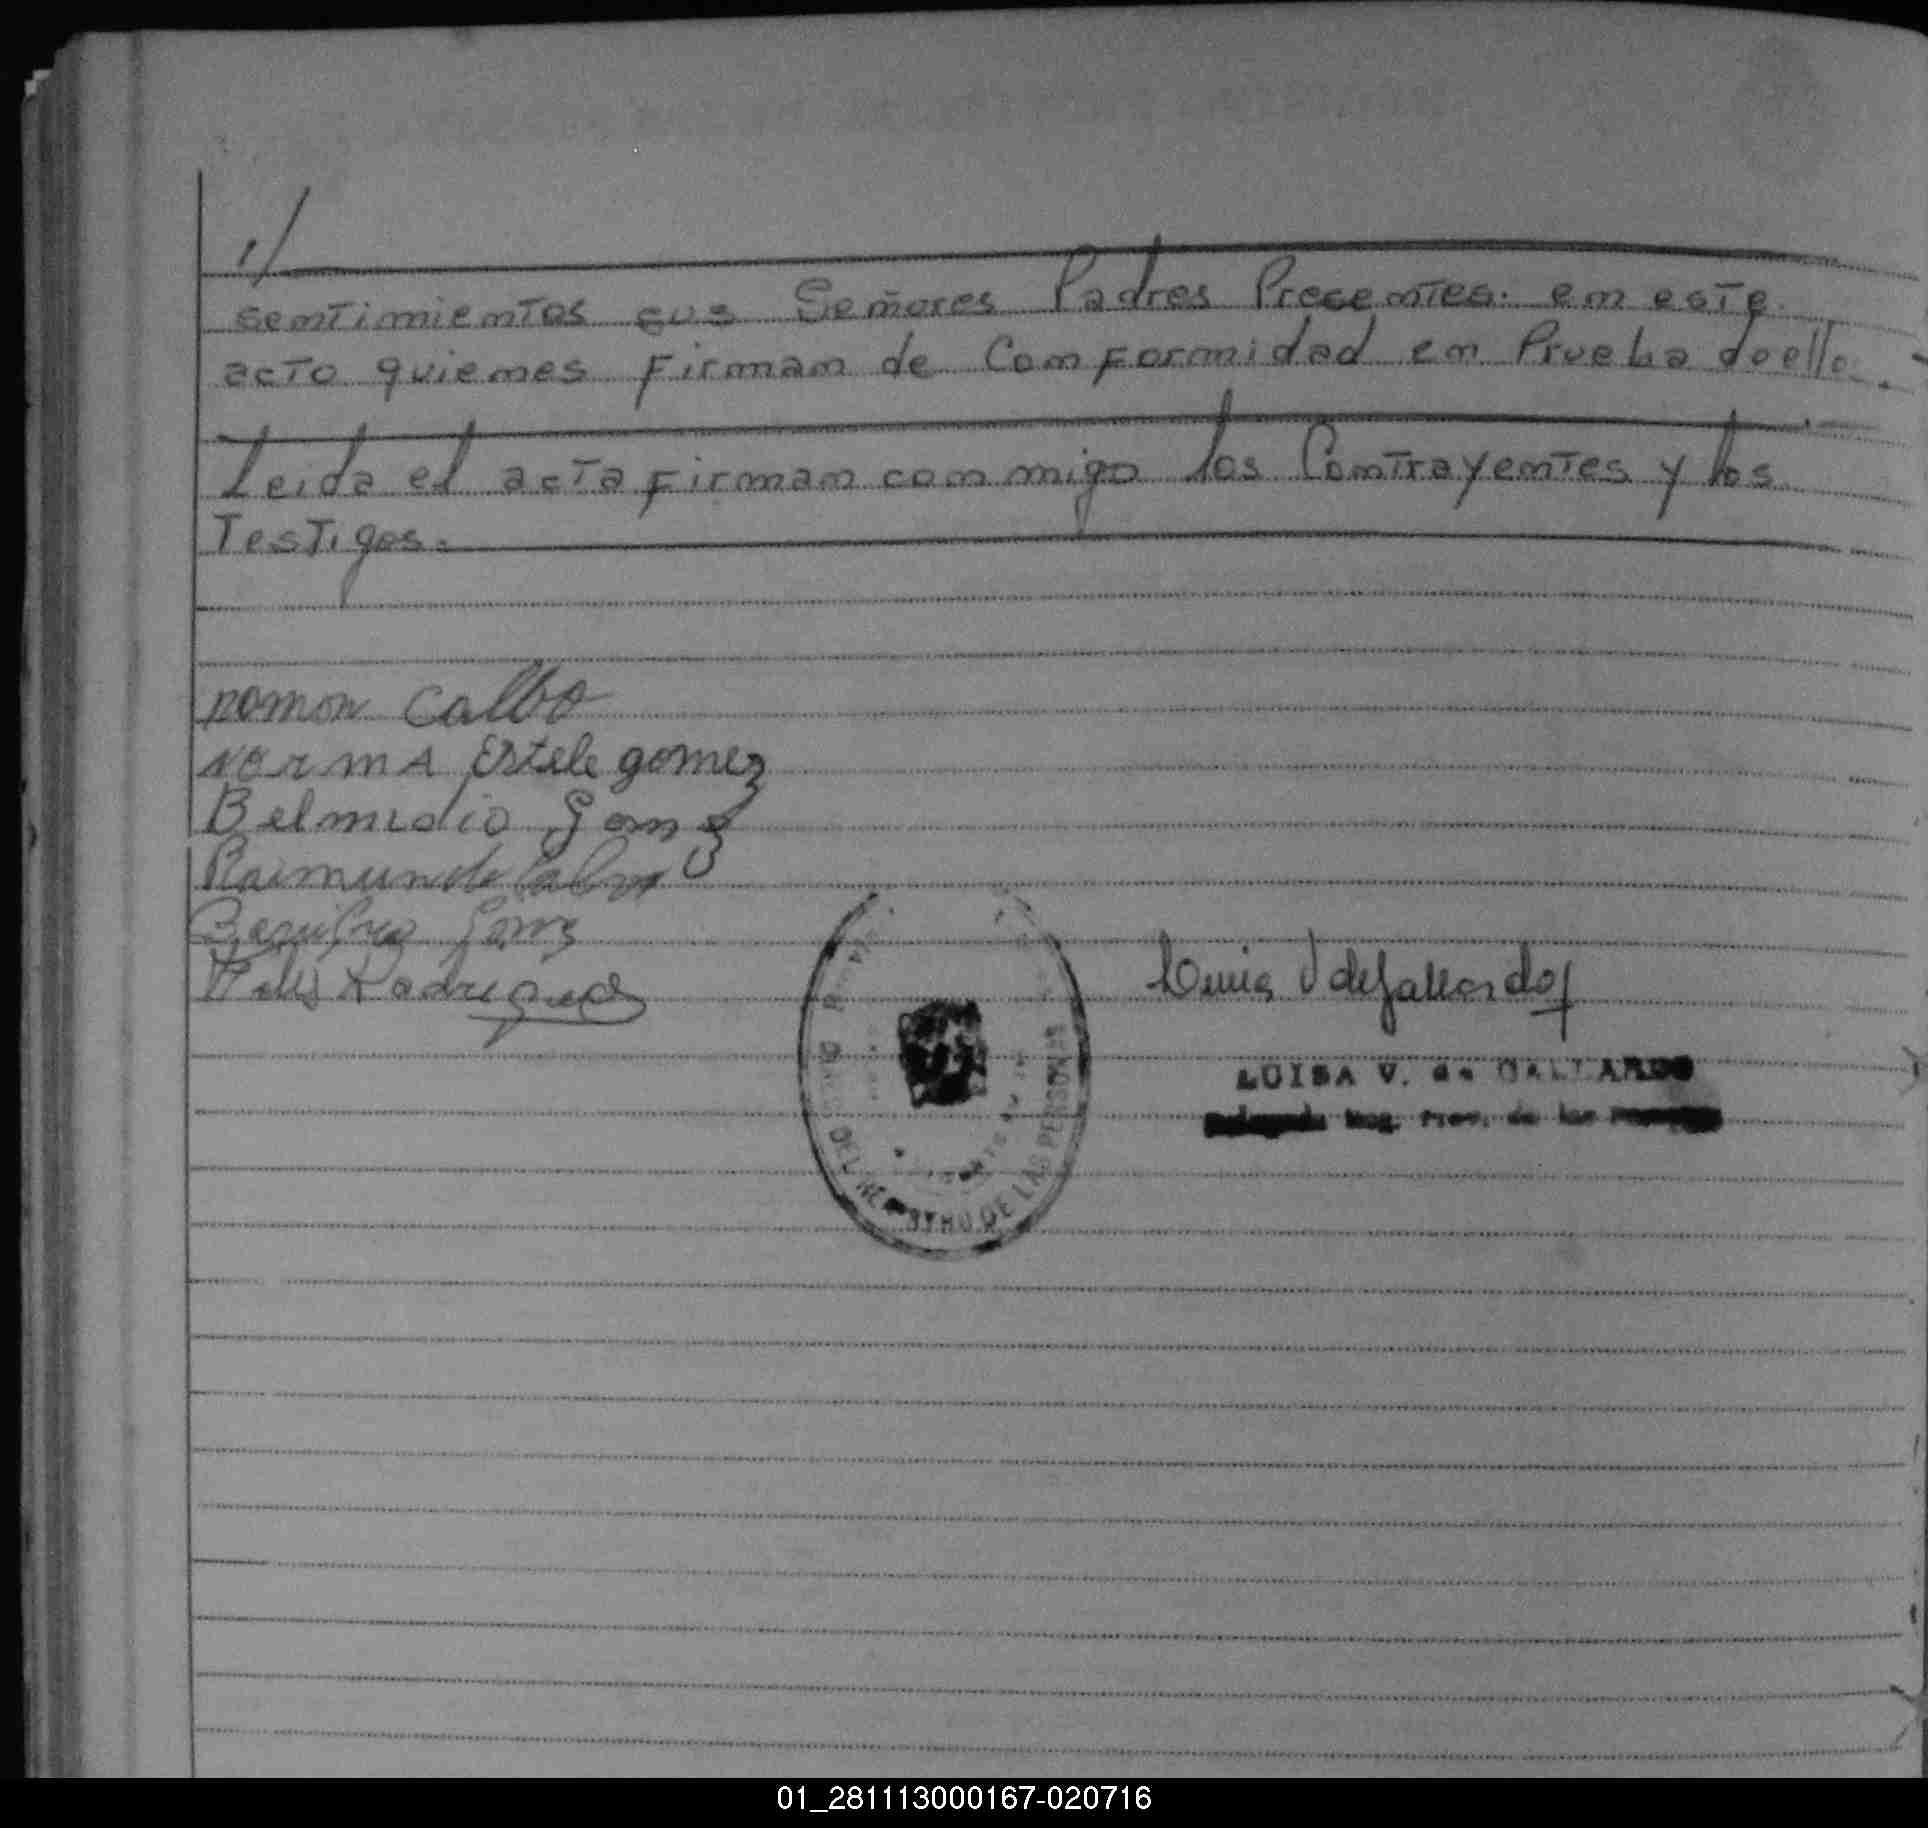 1/
sentimientos sus Señores Padres Presentes. en este
acto quienes Firman de Conformidad en Prueba de ello.
Leida el acta Firman conmigo los Contrayentes y los
Testigos.
Ramon Calbo
Norma Estele gomez
Belmidio Gomez
Raimundo Calvo
Gomez
Felis Rodriguez
Luisa V de Gallardo
LUISA V. de GALLARDO
Reg. Prov. de las
DEL REGISTRO DE LAS PERSONAS
01_281113000167-020716